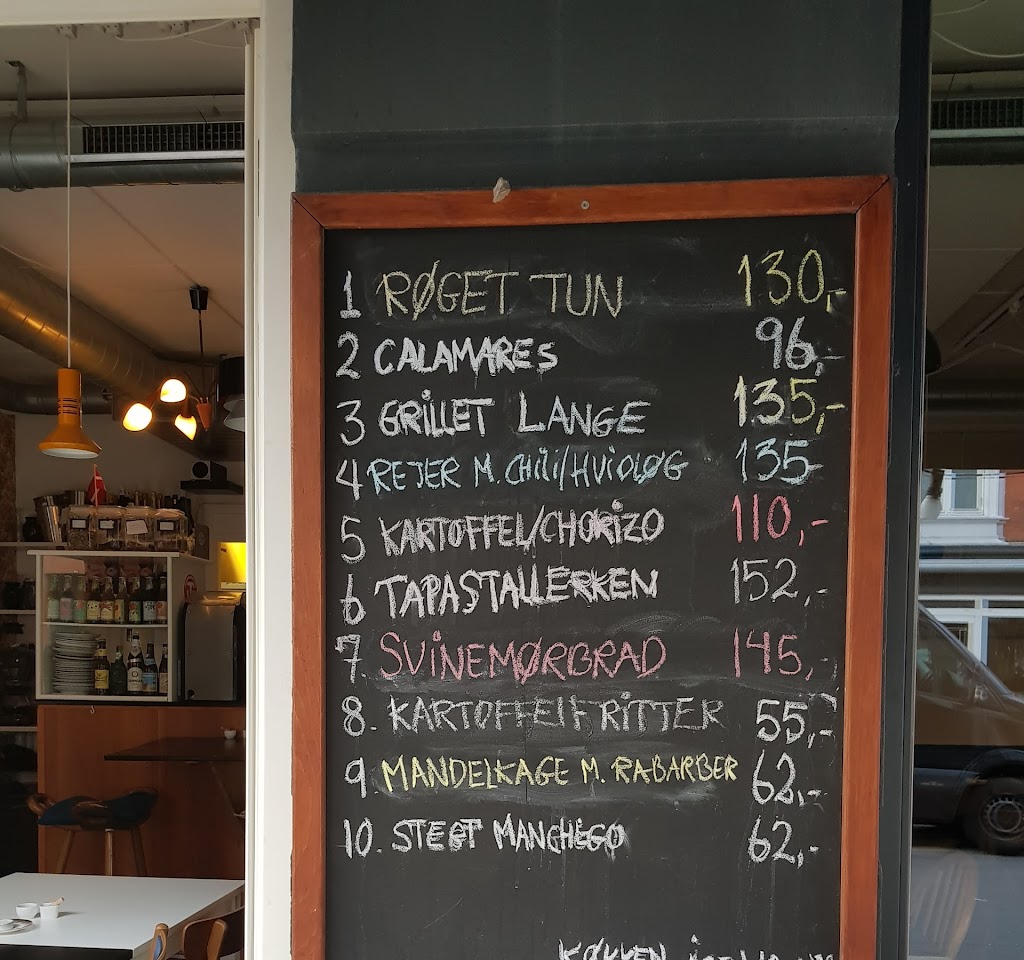 1 RØGET TUN 130,-
2 CALAMARES 96,-
3 GRILLET LANGE 135,-
4 REJER M. CHILI/HVIDLØG 135,-
5 KARTOFFEL/CHORIZO 110,-
6 TAPASTALLERKEN 152,-
7. SVINEMØRBRAD 145,-
8. KARTOFFELFRITTER 55,-
9 MANDELKAGE M. RABARBER 62,-
10. STEGT MANCHEGO 62,-
KØKKEN